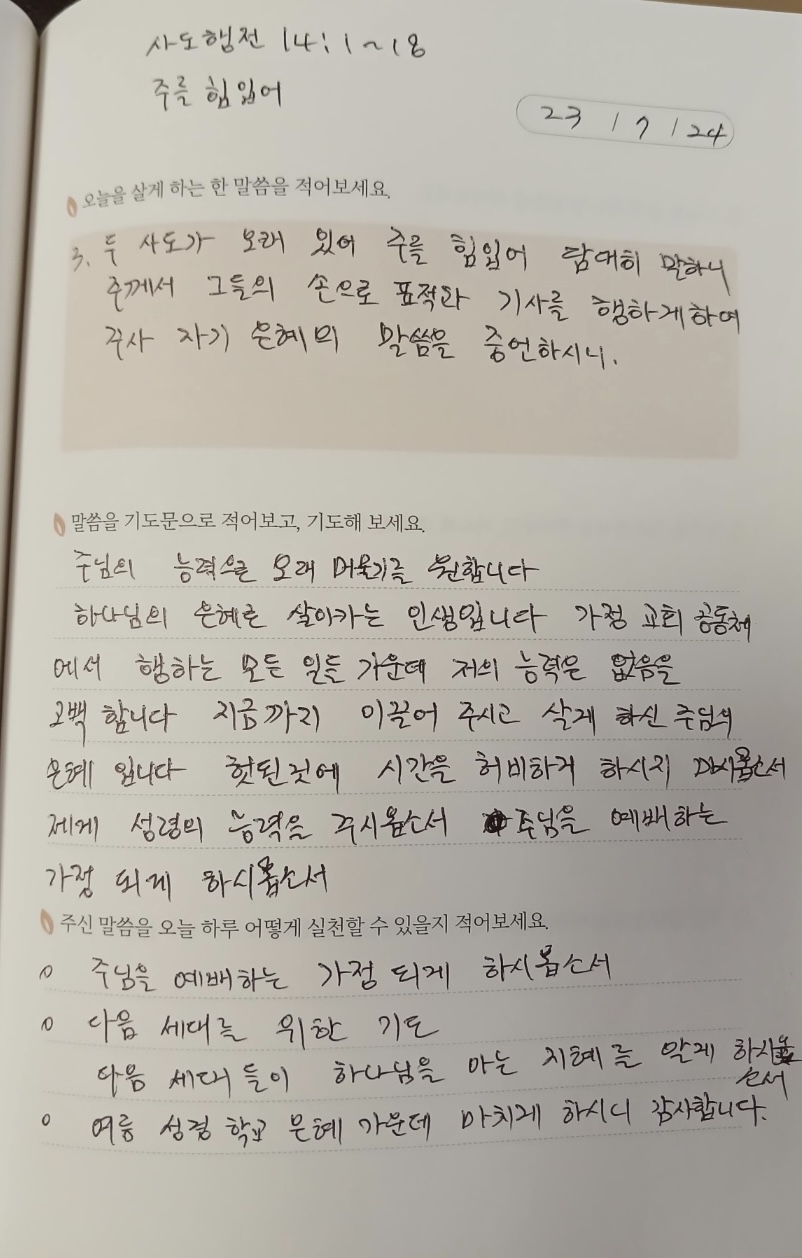 사도행전 14:1~18
주를 힘입어
23 / 7 / 24
오늘을 살게 하는 한 말씀을 적어보세요.
3. 두 사도가 오래 있어 주를 힘입어 담대히 말하니
주께서 그들의 손으로 표적과 기사를 행하게하여
주사 자기 은혜의 말씀을 증언하시니.
말씀을 기도문으로 적어보고, 기도해 보세요.
주님의 능력으로 오래 머물기를 원합니다
하나님의 은혜로 살아가는 인생입니다 가정 교회 공동체
에서 행하는 모든 일들 가운데 저의 능력은 없음을
고백 합니다 지금까지 이끌어 주시고 살게 하신 주님의
은혜 입니다 헛된것에 시간을 허비하게 하시지 마시옵소서
제게 성령의 능력을 주시옵소서 주님을 예배하는
가정 되게 하시옵소서
주신 말씀을 오늘 하루 어떻게 실천할 수 있을지 적어보세요.
o 주님을 예배하는 가정 되게 하시옵소서
o 다음 세대를 위한 기도
다음 세대들이 하나님을 아는 지혜를 알게 하시옵
소서
o 여름 성경 학교 은혜 가운데 마치게 하시니 감사합니다.